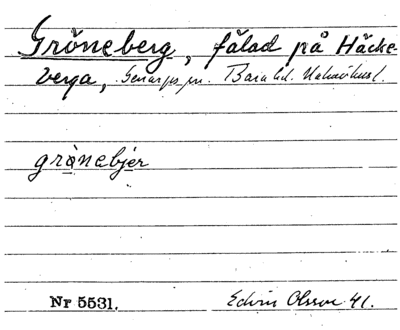 Gröneberg, fälad på Häcke-
berga, Genarps sn. Bara hd. Malmöhus l.
grönebjer
Nr 5531. Edvin Olsson 41.